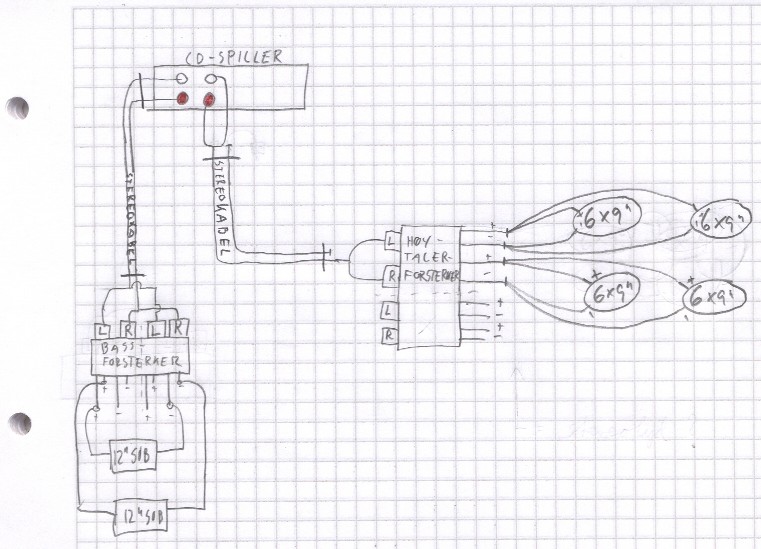 CD-SPILLER
STEREOKABEL
STEREOKABEL
L
R
L
R
HØY-
TALER-
FORSTERKER
+
-
+
-
+
-
+
-
+ 6x9" -
+ 6x9" -
+
6x9"
-
+
6x9"
-
L R L R
BASS-
FORSTERKER
+ - + -
+ - + -
12" SUB
12" SUB